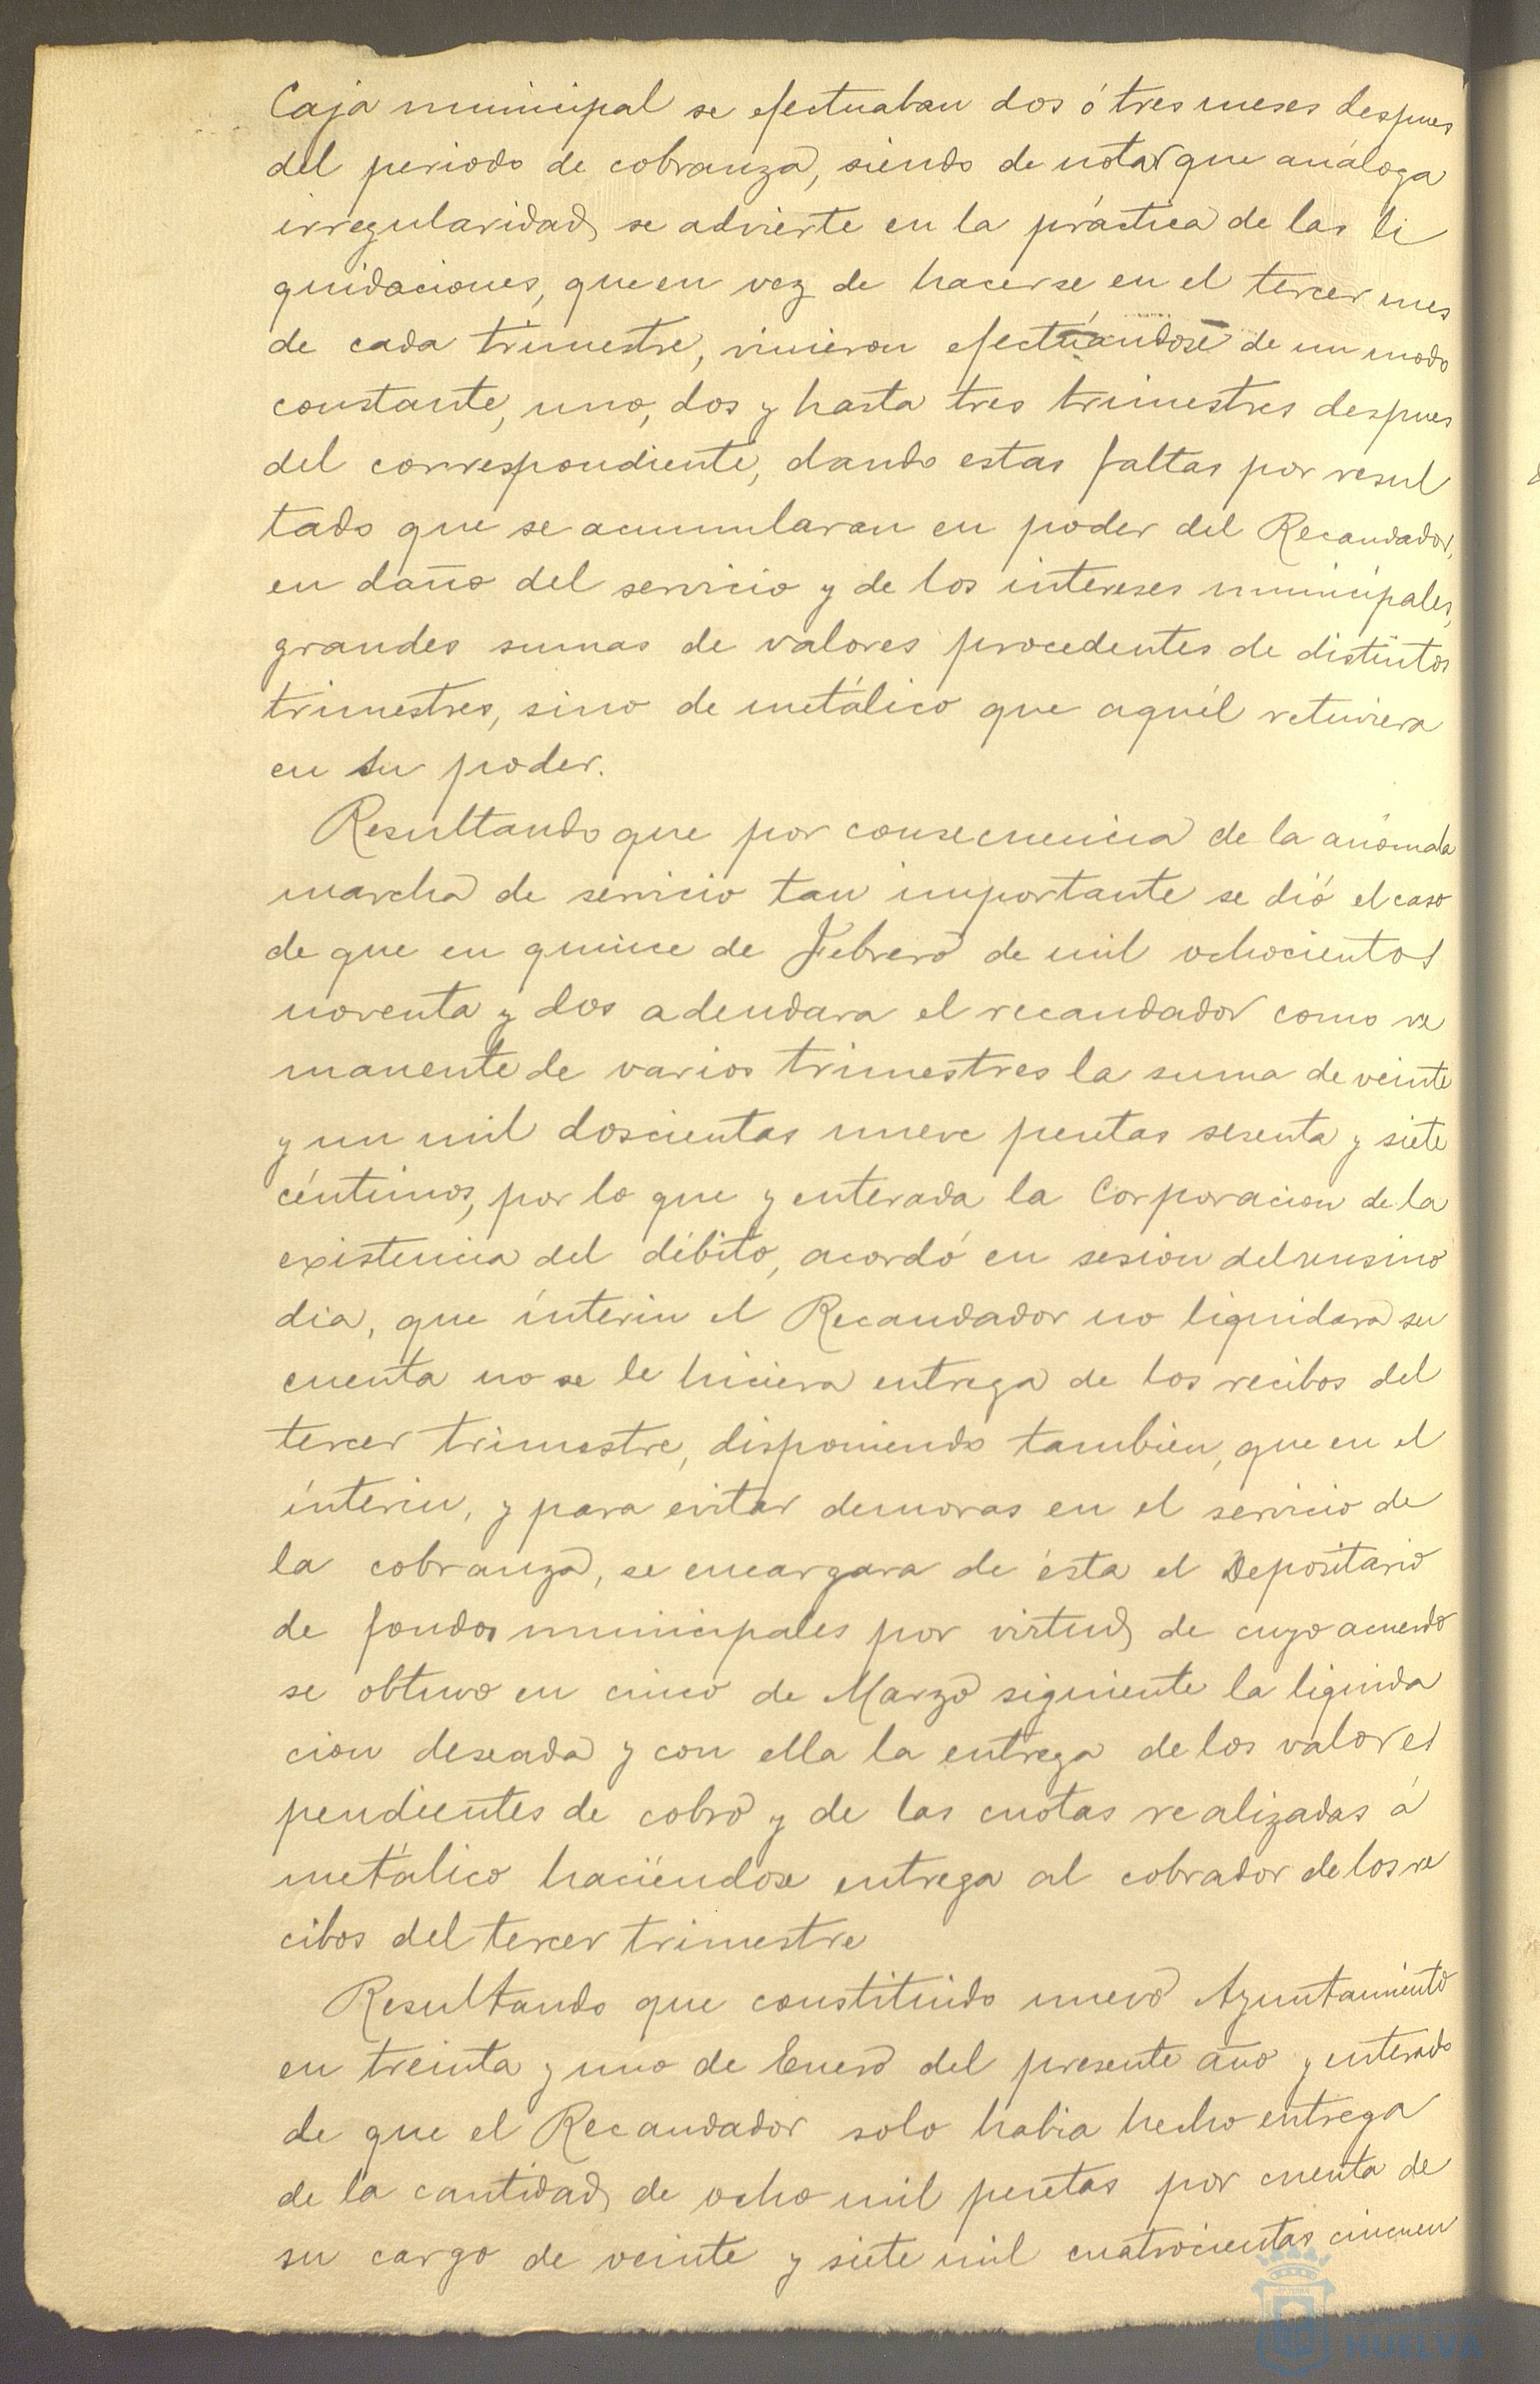 Caja municipal se efectuaban dos ó tres meses despues
del periodo de cobranza, siendo de notar que análoga
irregularidad se advierte en la práctica de las li
quidaciones, que en vez de hacerse en el tercer mes
de cada trimestre, vinieron efectuándose de un modo
constante, uno, dos y hasta tres trimestres despues
del correspondiente, dando estas faltas por resul
tado que se acumularan en poder del Recaudador,
en daño del servicio y de los intereses municipales,
grandes sumas de valores procedentes de distintos
trimestres, sino de metálico que aquél retuviera
en su poder.
Resultando que por consecuencia de la anómala
marcha de servicio tan importante se dió el caso
de que en quince de Febrero de mil ochocientos
noventa y dos adeudara el recaudador como re
manente de varios trimestres la suma de veinte
y un mil doscientas nueve pesetas sesenta y siete
céntimos, por lo que y enterada la Corporacion de la
existencia del débito, acordó en sesion del mismo
dia, que ínterin el Recaudador no liquidara su
cuenta no se le hiciera entrega de los recibos del
tercer trimestre, disponiendo tambien, que en el
ínterin, y para evitar demoras en el servicio de
la cobranza, se encargara de ésta el Depositario
de fondos municipales por virtud de cuyo acuerdo
se obtuvo en cinco de Marzo siguiente la liquida
cion deseada y con ella la entrega de los valores
pendientes de cobro y de las cuotas realizadas á
metálico haciendose entrega al cobrador de los re
cibos del tercer trimestre
Resultando que constituido nuevo Ayuntamiento
en treinta y uno de Enero del presente año y enterado
de que el Recaudador solo habia hecho entrega
de la cantidad de ocho mil pesetas por cuenta de
su cargo de veinte y siete mil cuatrocientas cincuen
HUELVA